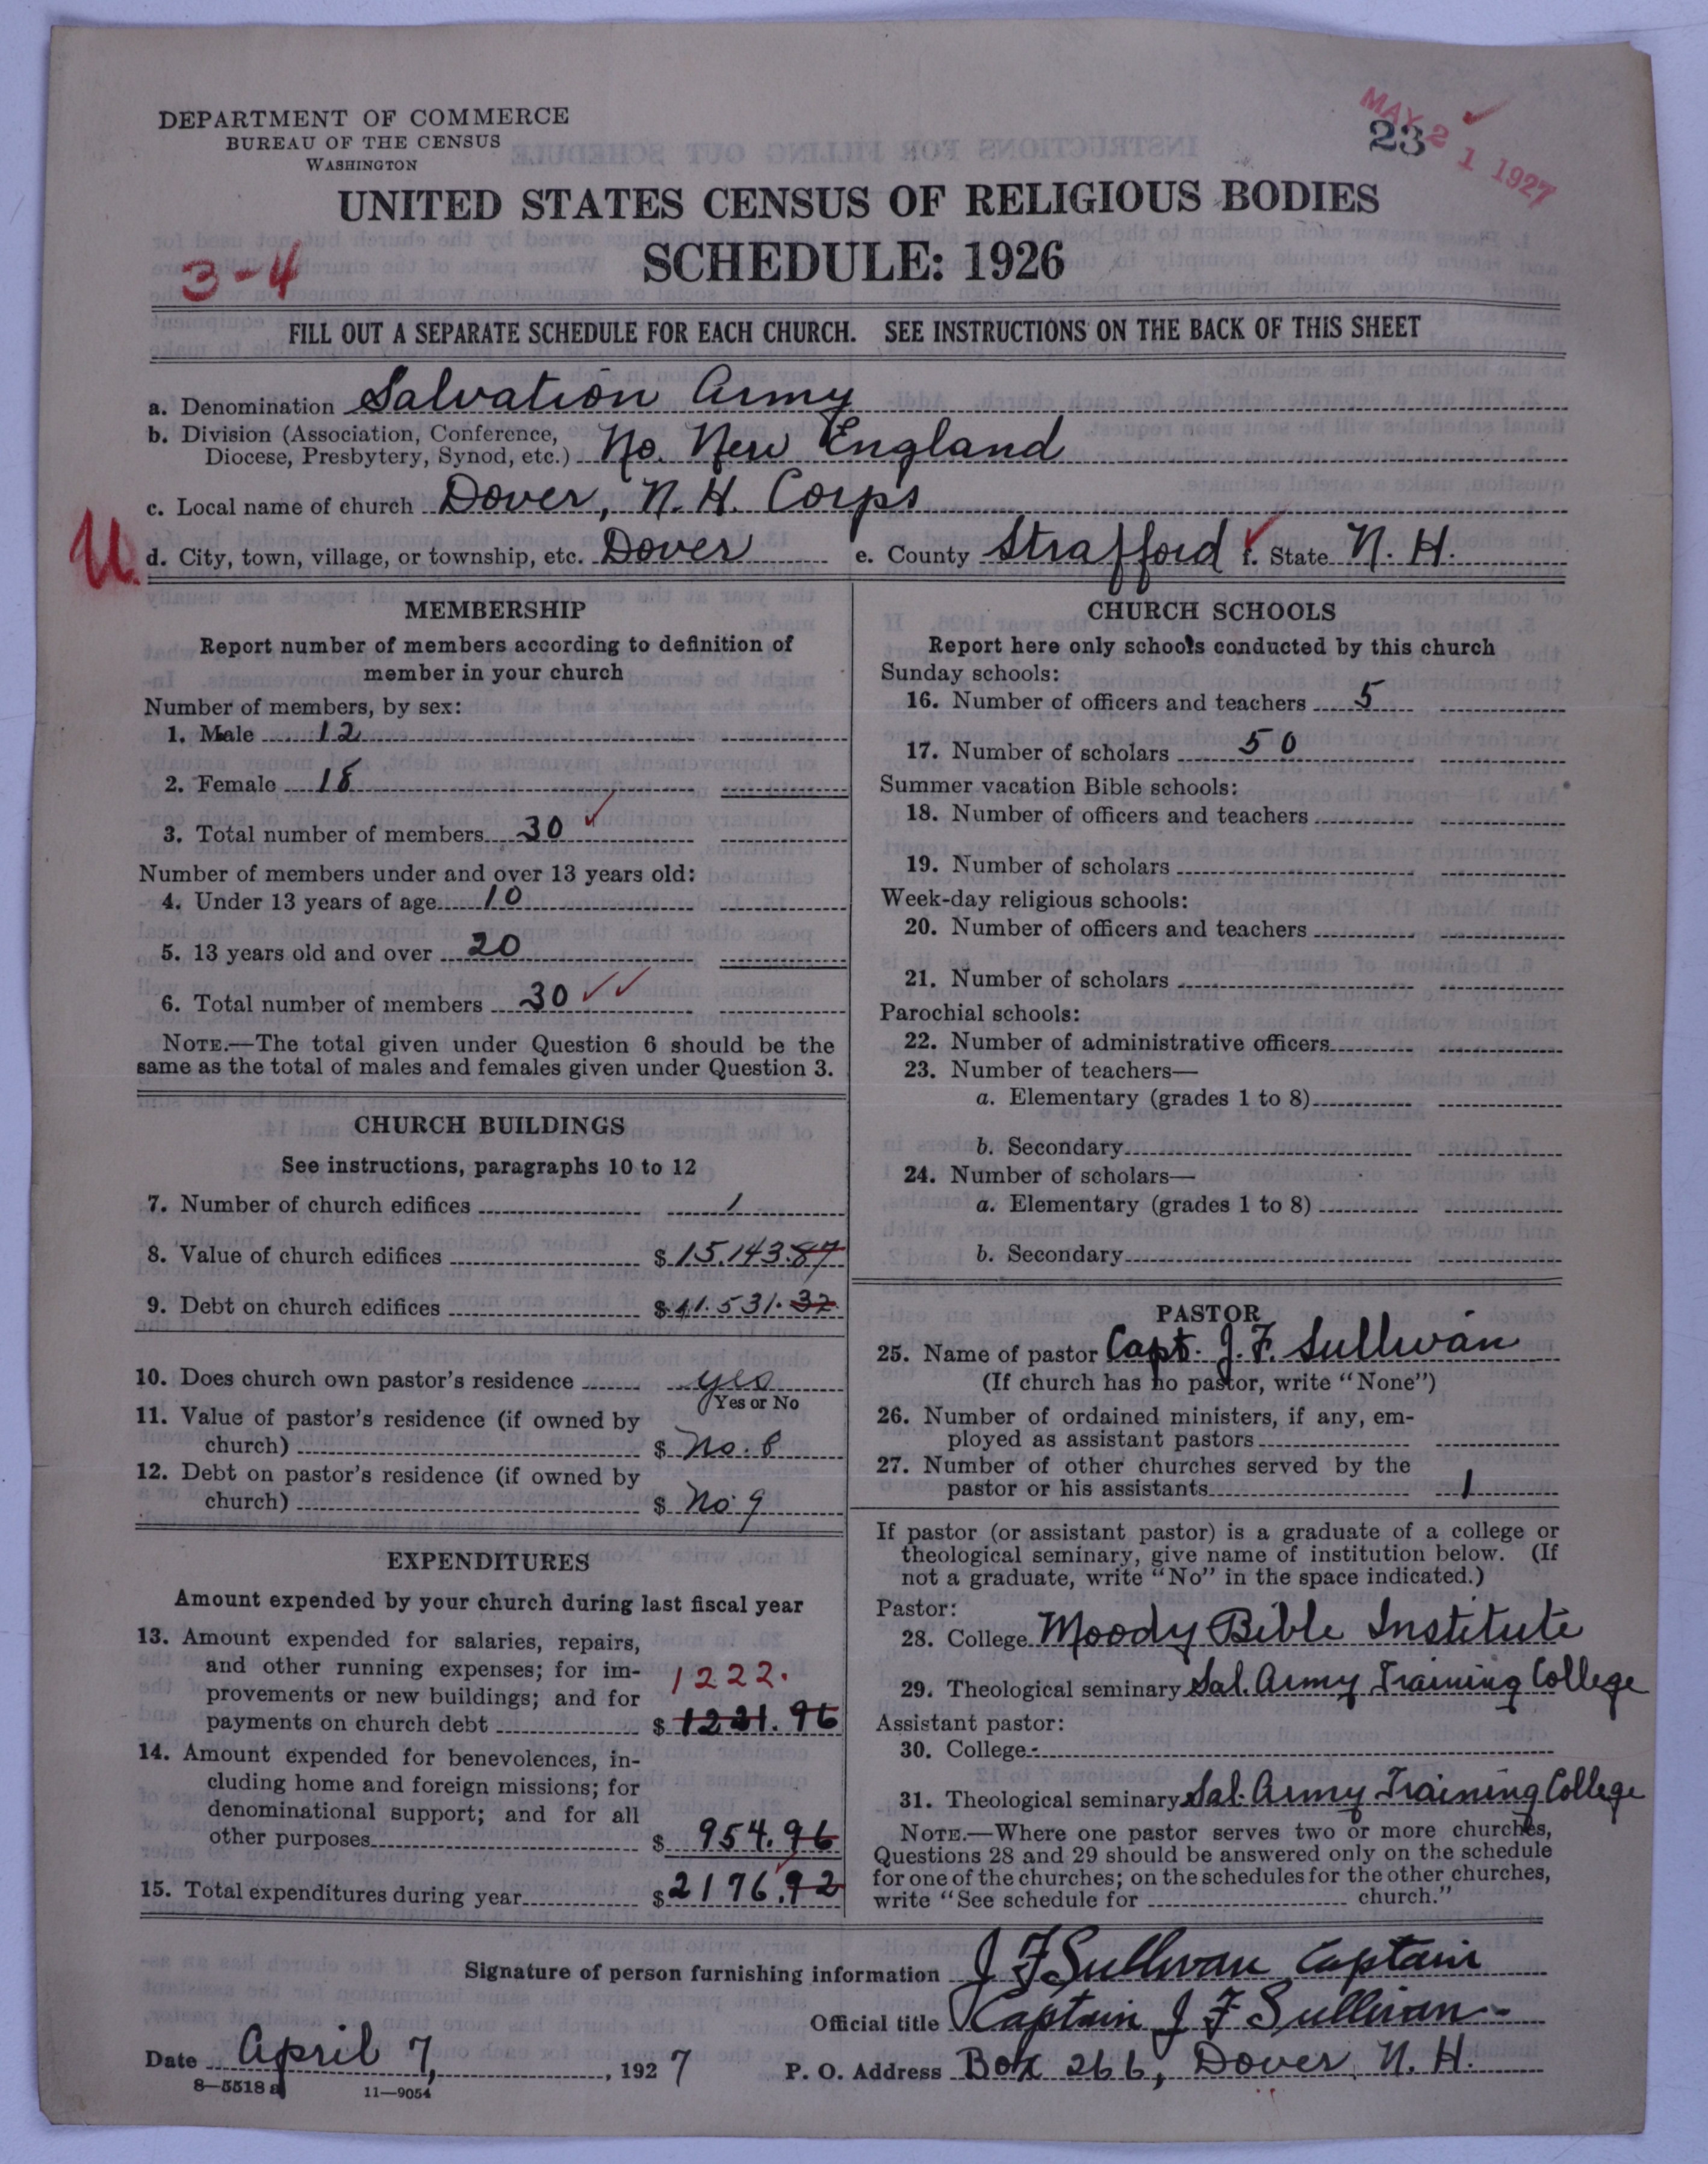 DEPARTMENT OF COMMERCE
BUREAU OF THE CENSUS
WASHINGTON
MAY 21 1927
23
UNITED STATES CENSUS OF RELIGIOUS BODIES
SCHEDULE: 1926
3-4
FILL OUT A SEPARATE SCHEDULE FOR EACH CHURCH. SEE INSTRUCTIONS ON THE BACK OF THIS SHEET
a. Denomination Salvation Army
b. Division (Association, Conference,
Diocese, Presbytery, Synod, etc.) No. New England
c. Local name of church Dover, N.H. Corps
U.
d. City, town, village, or township, etc. Dover e. County Strafford f. State N. H.
MEMBERSHIP
Report number of members according to definition of
member in your church
Number of members, by sex:
1. Male 12
2. Female 18
3. Total number of members 30
Number of members under and over 13 years old:
4. Under 13 years of age 10
5. 13 years old and over 20
6. Total number of members 30
NOTE.—The total given under Question 6 should be the
same as the total of males and females given under Question 3.
CHURCH BUILDINGS
See instructions, paragraphs 10 to 12
7. Number of church edifices 1
8. Value of church edifices $ 15.143.87
9. Debt on church edifices $ 11.531.32
10. Does church own pastor's residence yes
Yes or No
11. Value of pastor's residence (if owned by
church) $ No. 8
12. Debt on pastor's residence (if owned by
church) $ No 9
EXPENDITURES
Amount expended by your church during last fiscal year
13. Amount expended for salaries, repairs,
and other running expenses; for im-
provements or new buildings; and for 1222.
payments on church debt $ 1221.96
14. Amount expended for benevolences, in-
cluding home and foreign missions; for
denominational support; and for all
other purposes $ 954.96
15. Total expenditures during year $ 2176.92
CHURCH SCHOOLS
Report here only schools conducted by this church
Sunday schools:
16. Number of officers and teachers 5
17. Number of scholars 50
Summer vacation Bible schools:
18. Number of officers and teachers
19. Number of scholars
Week-day religious schools:
20. Number of officers and teachers
21. Number of scholars
Parochial schools:
22. Number of administrative officers
23. Number of teachers—
a. Elementary (grades 1 to 8)
b. Secondary
24. Number of scholars—
a. Elementary (grades 1 to 8)
b. Secondary
PASTOR
25. Name of pastor Capt. J. F. Sullivan
(If church has no pastor, write "None")
26. Number of ordained ministers, if any, em-
ployed as assistant pastors
27. Number of other churches served by the
pastor or his assistants 1
If pastor (or assistant pastor) is a graduate of a college or
theological seminary, give name of institution below. (If
not a graduate, write "No" in the space indicated.)
Pastor:
28. College Moody Bible Institute
29. Theological seminary Sal. Army Training College
Assistant pastor:
30. College
31. Theological seminary Sal. Army Training College
NOTE.—Where one pastor serves two or more churches,
Questions 28 and 29 should be answered only on the schedule
for one of the churches; on the schedules for the other churches,
write "See schedule for church."
Signature of person furnishing information J F Sullivan Captain
Official title Captain J F Sullivan
Date April 7, 1927 P. O. Address Box 266, Dover N. H.
8—5518 a 11—9054